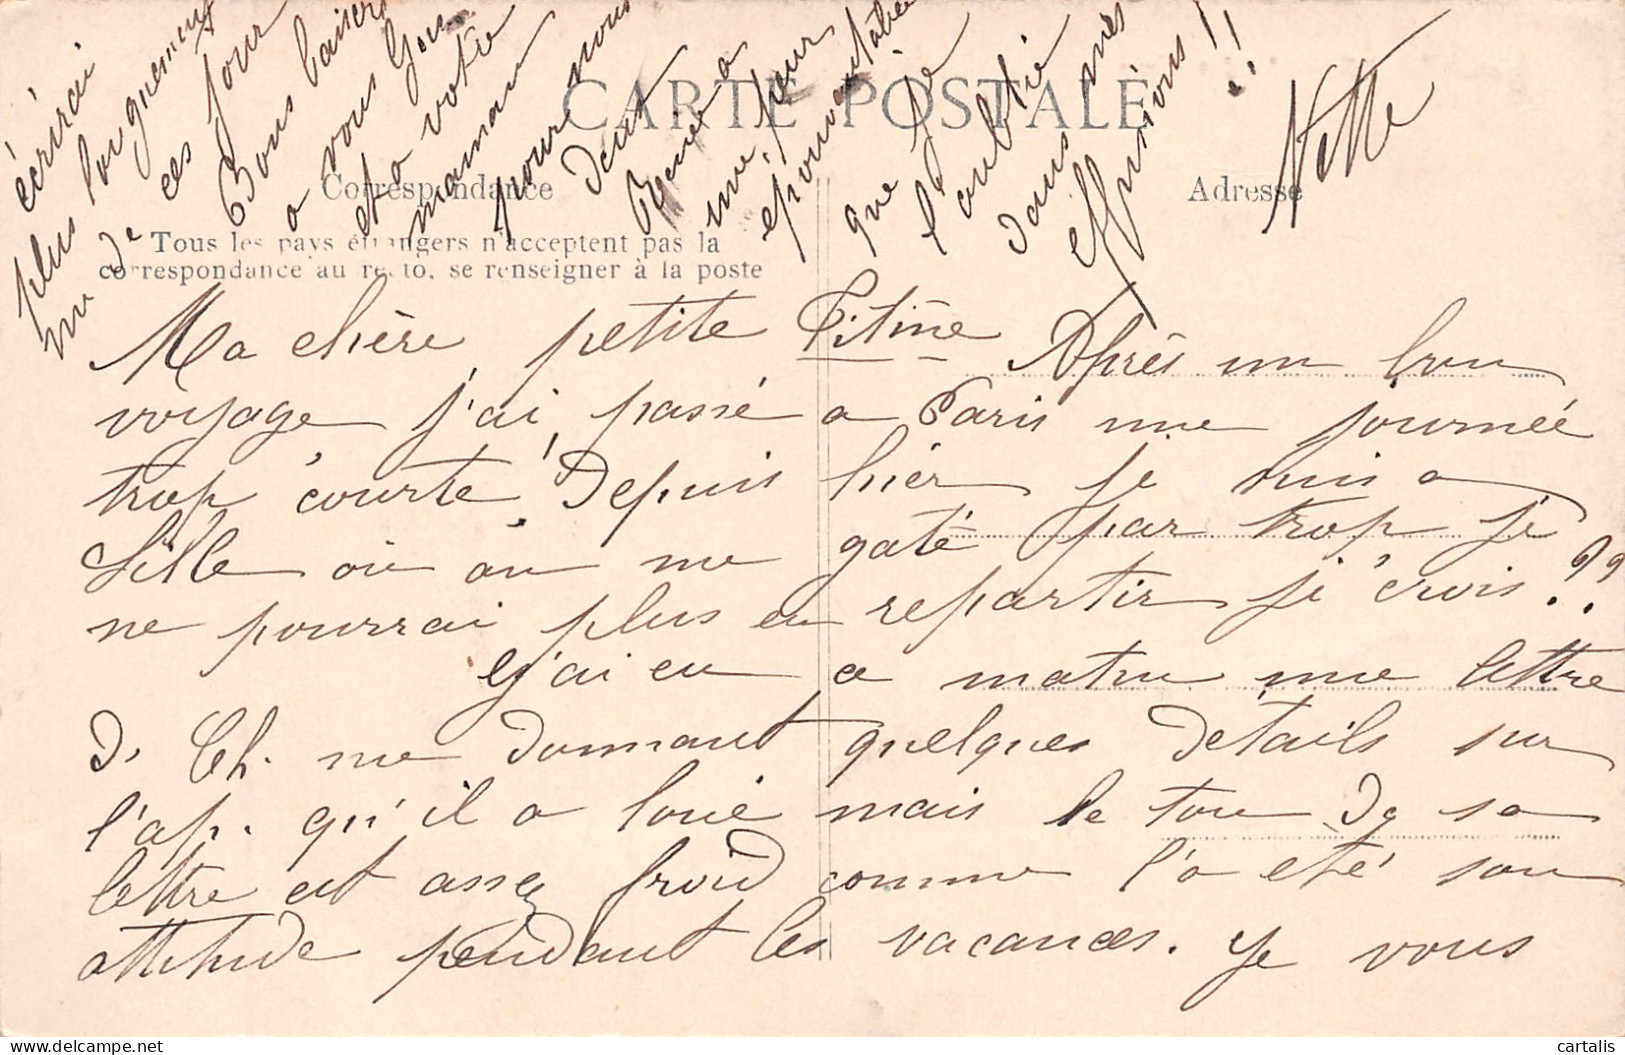 CARTE POSTALE
Correspondance
Adresse
Tous les pays étrangers n'acceptent pas la
correspondance au recto, se renseigner à la poste
Ma chère petite Titine Après un bon
voyage j'ai passé a Paris une journée
trop courte, Depuis hier je suis a
Lille où on me gate par trop je
ne pourrai plus en repartir je crois!??
J'ai eu ce matin une lettre
d. Ch. me donnant quelques details sur
l'ap. qu'il a loué mais le ton de sa
lettre est assez froid comme l'a eté son
attitude pendant les vacances. Je vous
écrirai
plus longuement
un de ces jour
Bons baisers
a vous
et a votre
maman
pour nous
deux
une peur
epouvantable
que je
l'oublie
dans mes
!!
Nette
cartalis